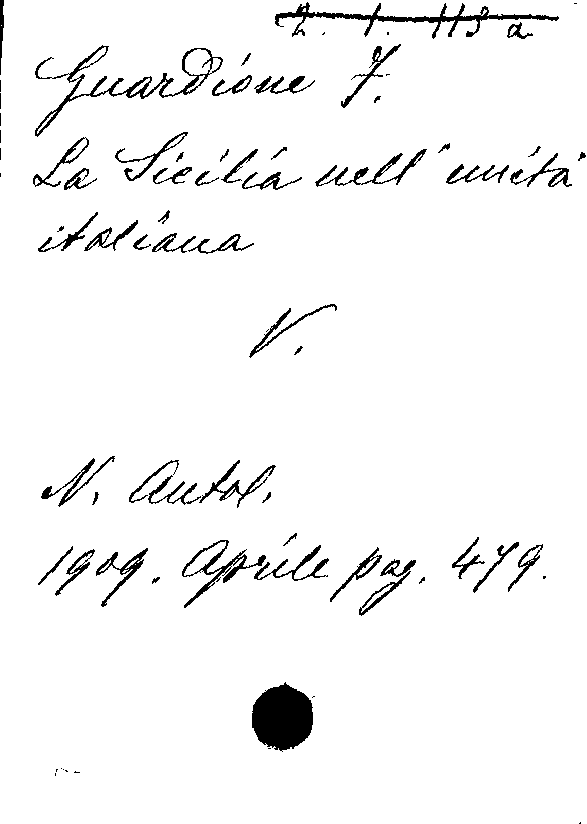 2. 1. 113 a
Guardione F.
La Sicilia nell'unità
italiana
V.
N. Antol.
1909. Aprile pag. 479.